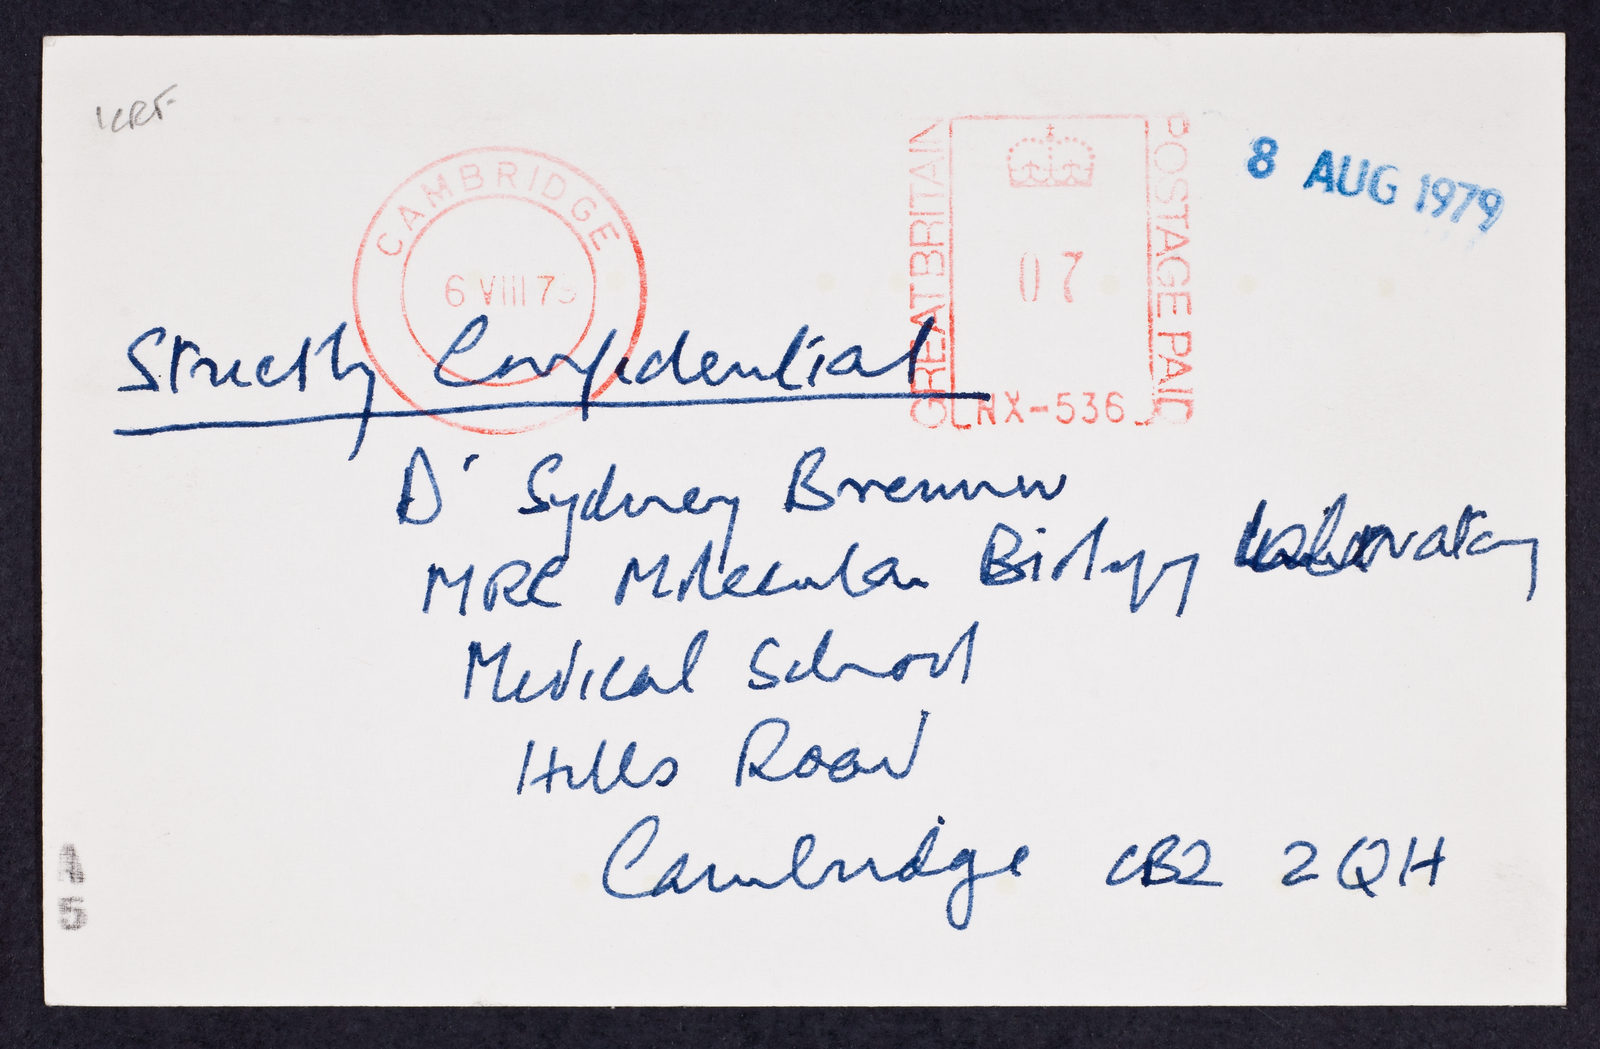 KRF
CAMBRIDGE
6 VIII 79
GREAT BRITAIN
07
POSTAGE PAID
NX-536
8 AUG 1979
Strictly Confidential
Dr Sydney Brenner
MRC Molecular Biology Laboratory
Medical School
Hills Road
Cambridge CB2 2QH
5